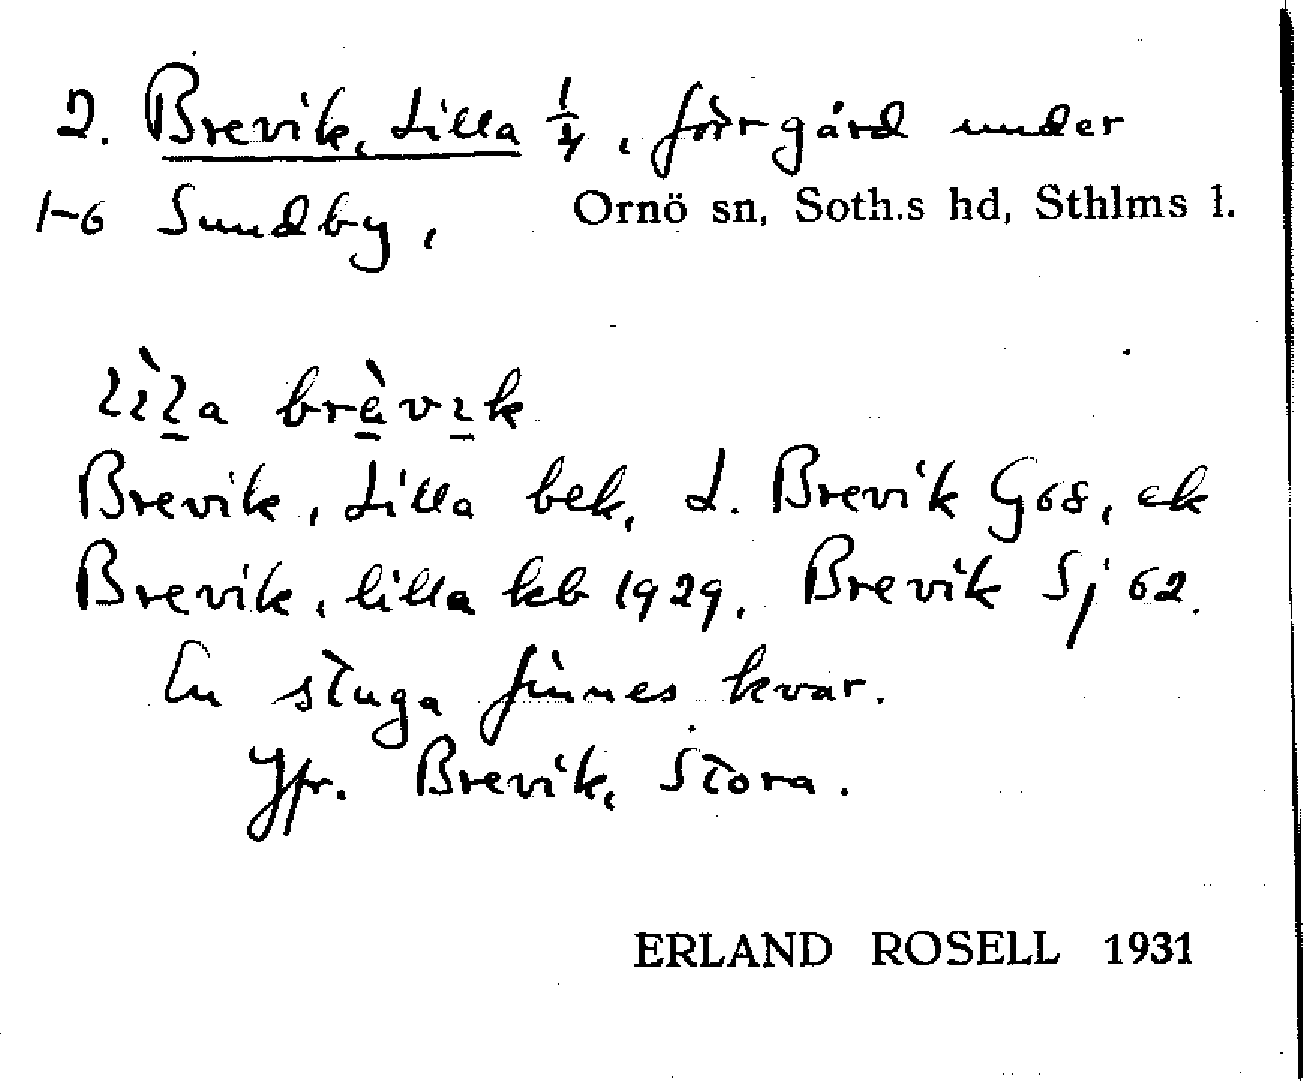 2. Brevik, Lilla 1/4, förr gård under
1-6 Sundby, Ornö sn, Soth.s hd, Sthlms l.
lìla brèvık
Brevik, Lilla bek, L. Brevik G68, ek
Brevik, lilla kb 1929. Brevik Sj 62.
En stuga finnes kvar.
Jfr. Brevik, Stora.
ERLAND ROSELL 1931